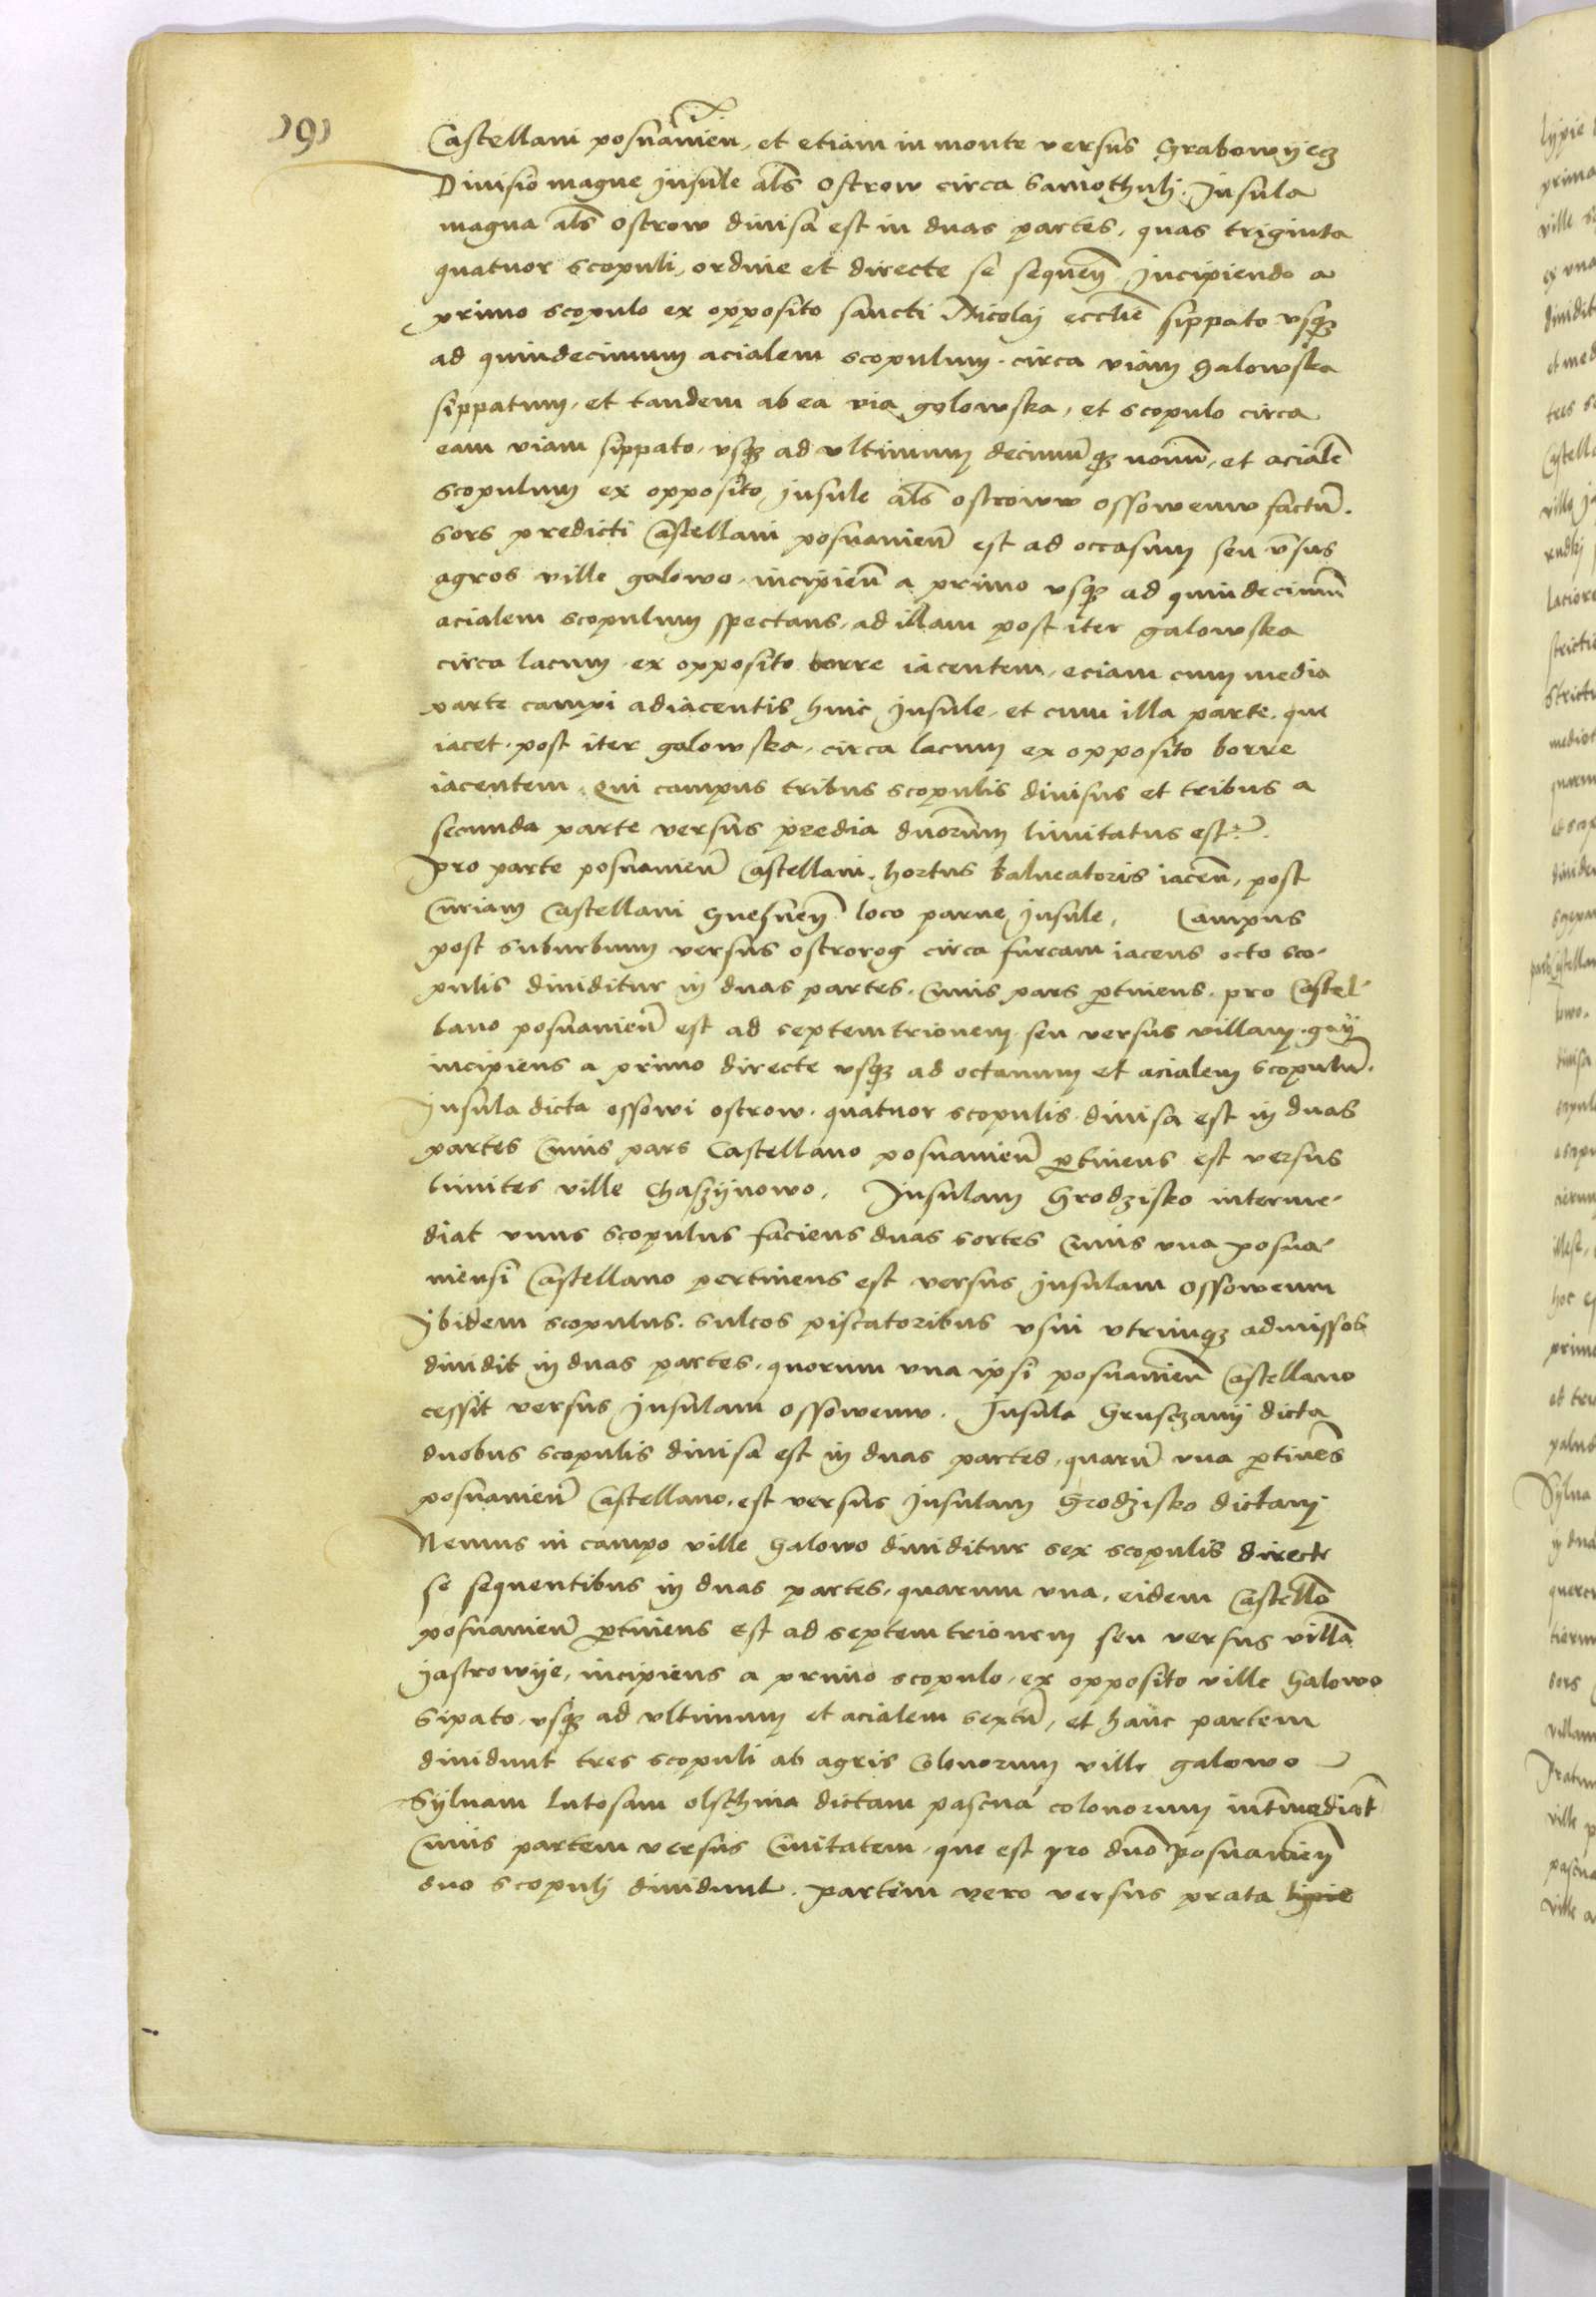 191
Castellani posnanień, et etiam in monte versus Grabowÿecz
Diuisio magne jnsule als Ostrow circa Samothulj. Jnsula
magna als Ostrow diuisa est in duas partes, quas triginta
quatuor scopuli, ordine et directe se sequeń jncipiendo a
primo scopulo ex opposito sancti Nicolaj ecclie sippato vsqz
ad quindecimum acialem scopulum. circa viam Galowska
sippatum, et tandem ab ea via golowska, et scopulo circa
eam viam sippato, vsqz ad vltimum decimū qz nonū, et acialē
scopulum ex opposito jnsule als ostroww ossowenw factū.
Sors predicti Castellani posnanień est ad occasum seu vsus
agros ville galowo, incipień a primo vsqz ad quindecimū
acialem scopulum spectans, ad illam post iter galowska
circa lacum ex opposito borre iacentem, eciam cum media
parte campi adiacentis huic jnsule, et cum illa parte, que
iacet. post iter galowska, circa lacum ex opposito borre
iacentem, Qui campus tribus scopulis diuisus et tribus a
secunda parte versus predia duorum limitatus est.
Pro parte posnanień Castellani. hortus balneatoris iaceń, post
Curiam Castellani Gnesneń loco parue jnsule. Campus
post suburbium versus ostrorog circa furcam iacens octo sco-
pulis diuiditur in duas partes. Cuius pars ptinens. pro Castel-
lano posnanień est ad septemtrionem seu versus villam gaÿ
incipiens a primo directe vsqz ad octauum et acialem scopulū.
Jnsula dicta ossowi ostrow. quatuor scopulis diuisa est in duas
partes Cuius pars Castellano posnanień ptinens est versus
limites ville Chaszÿnowo. Jnsulam Grodzisko interme-
diat vnus scopulus faciens duas sortes Cuius vna posna-
niensi Castellano pertinens est versus jnsulam ossowenm
Jbidem scopulus. sulcos piscatoribus vsui vtrimqz admissos
diuidit in duas partes. quorum vna ipsi posnanień Castellano
cessit versus jnsulam ossowenw. Jnsula Grusczanÿ dicta
duobus scopulis diuisa est in duas partes, quarū vna ptinēs
posnanień Castellano, est versus jnsulam Grodzisko dictam
Nemus in campo ville Galowo diuiditur sex scopulis directe
se sequentibus in duas partes, quarum vna, eidem Castello
posnanień ptinens est ad septemtrionem seu versus villā
jastrowÿe, incipiens a primo scopulo, ex opposito ville Galowo
Sipato vsqz ad vltimum et acialem sextū, et hanc partem
diuidunt tres scopuli ab agris Colonorum ville galowo
Syluam lutosam olschina dictam pascua colonorum intmediāt
Cuius partem versus Ciuitatem, que est pro duo posnanień
duo scopulj diuidunt. partem vero versus prata lipie